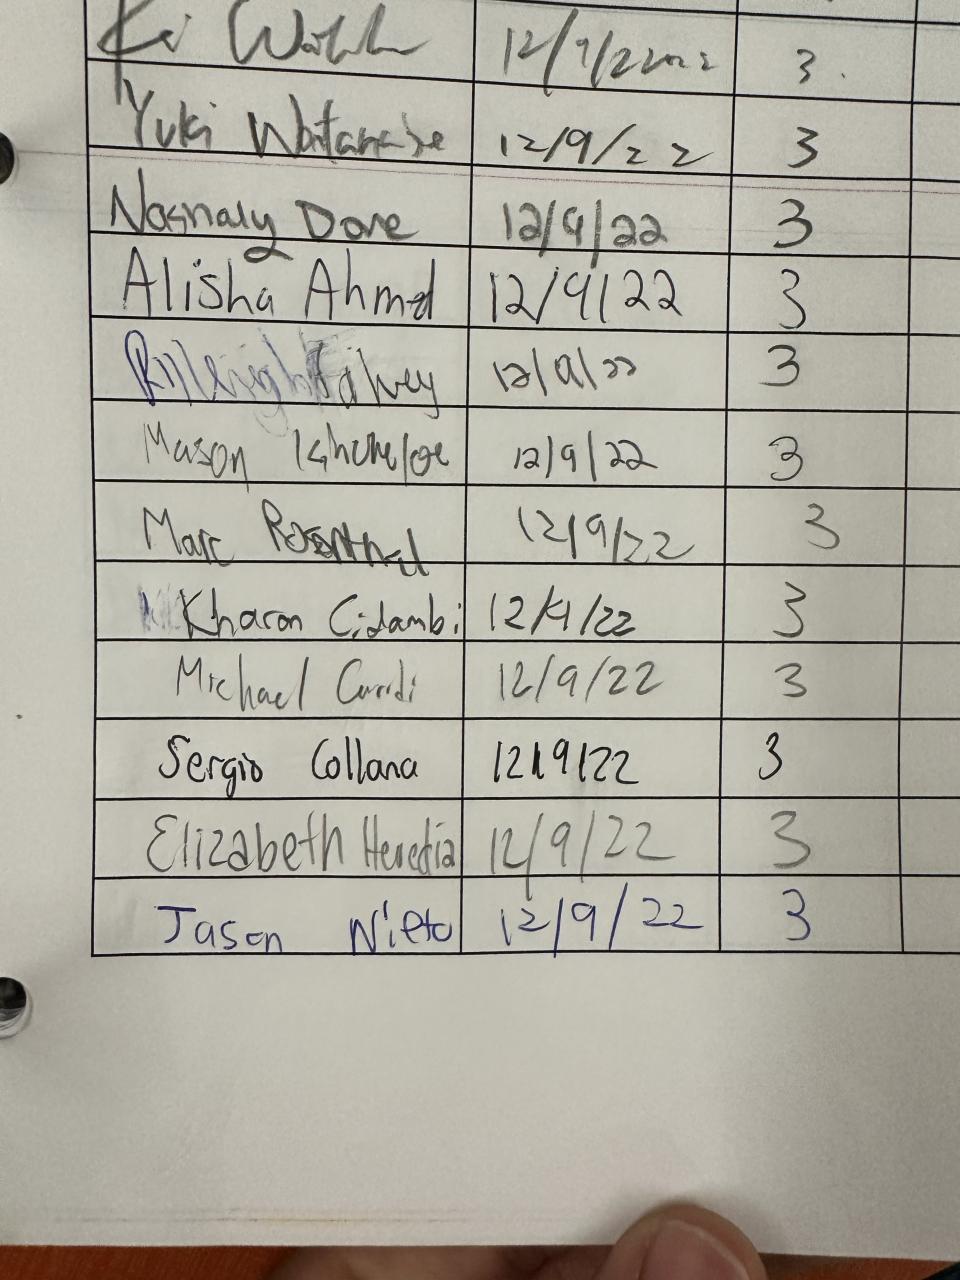 12/9/22
3
Yuki Watanabe 12/9/22 3
Dore 12/9/22 3
Alisha Ahmed 12/9/22 3
12/9/22 3
Mason 12/9/22 3
Marc Rosenthal 12/9/22 3
Kharon Cidambi 12/9/22 3
Michael 12/9/22 3
Sergio Collana 12/9/22 3
Elizabeth Heredia 12/9/22 3
Jason Nieto 12/9/22 3